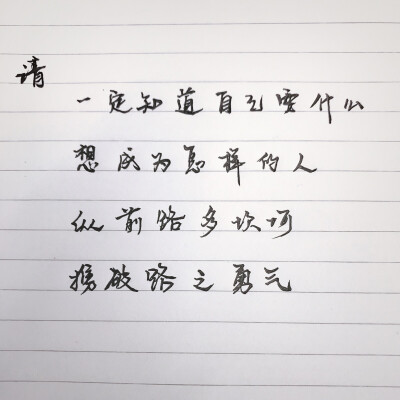 请
一定知道自己要什么
想成为怎样的人
纵前路多坎坷
携破路之勇气